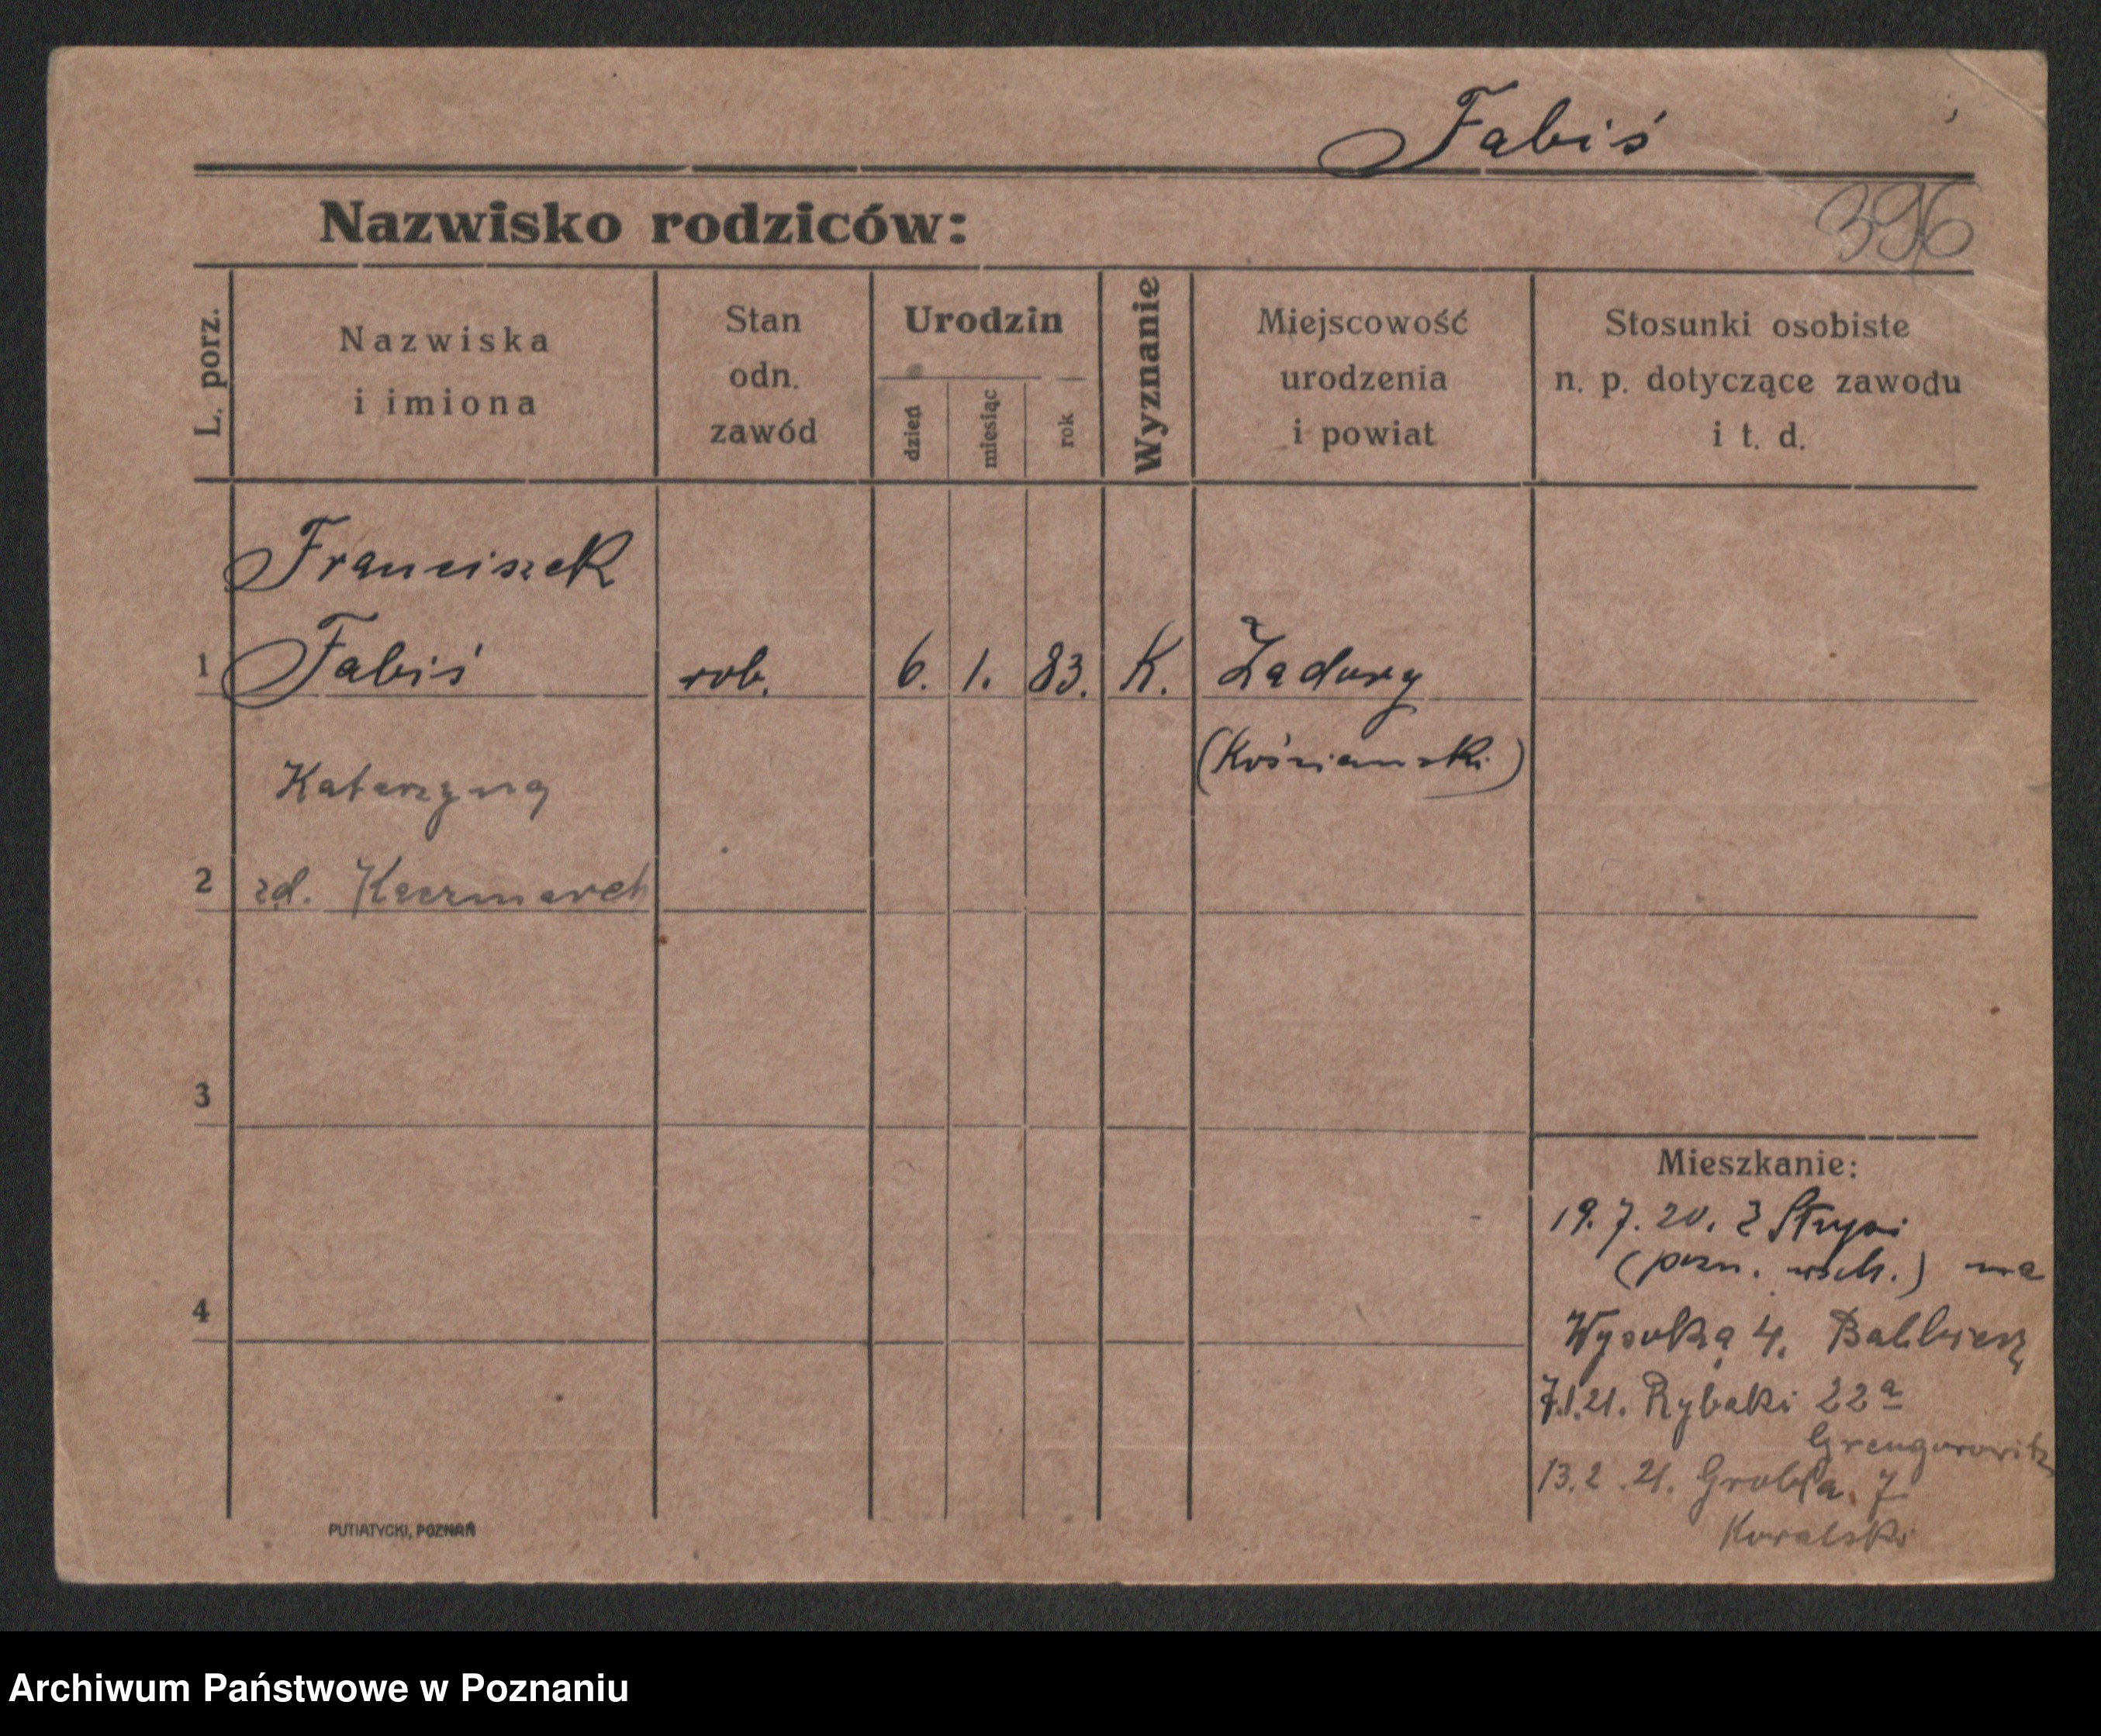 Fabiś
396
Nazwisko rodziców:
L. porz.
Nazwiska
i imiona
Stan
odn.
zawód
Urodzin
dzień
miesiąc
rok
Wyznanie
Miejscowość
urodzenia
i powiat
Stosunki osobiste
n. p. dotyczące zawodu
i t. d.
Franciszek
1 Fabiś rob. 6. 1. 83. K. Zadory
(Kościański)
Katarzyna
2 zd. Kaczmarek
3
4
Mieszkanie:
19. 7. 20. z
(pozn. wsch.) na
Wysoką 4.
7.1.21. Rybaki 22a
13.2.21. Grobla 7
Kowalski
PUTIATYCKI, POZNAŃ
Archiwum Państwowe w Poznaniu